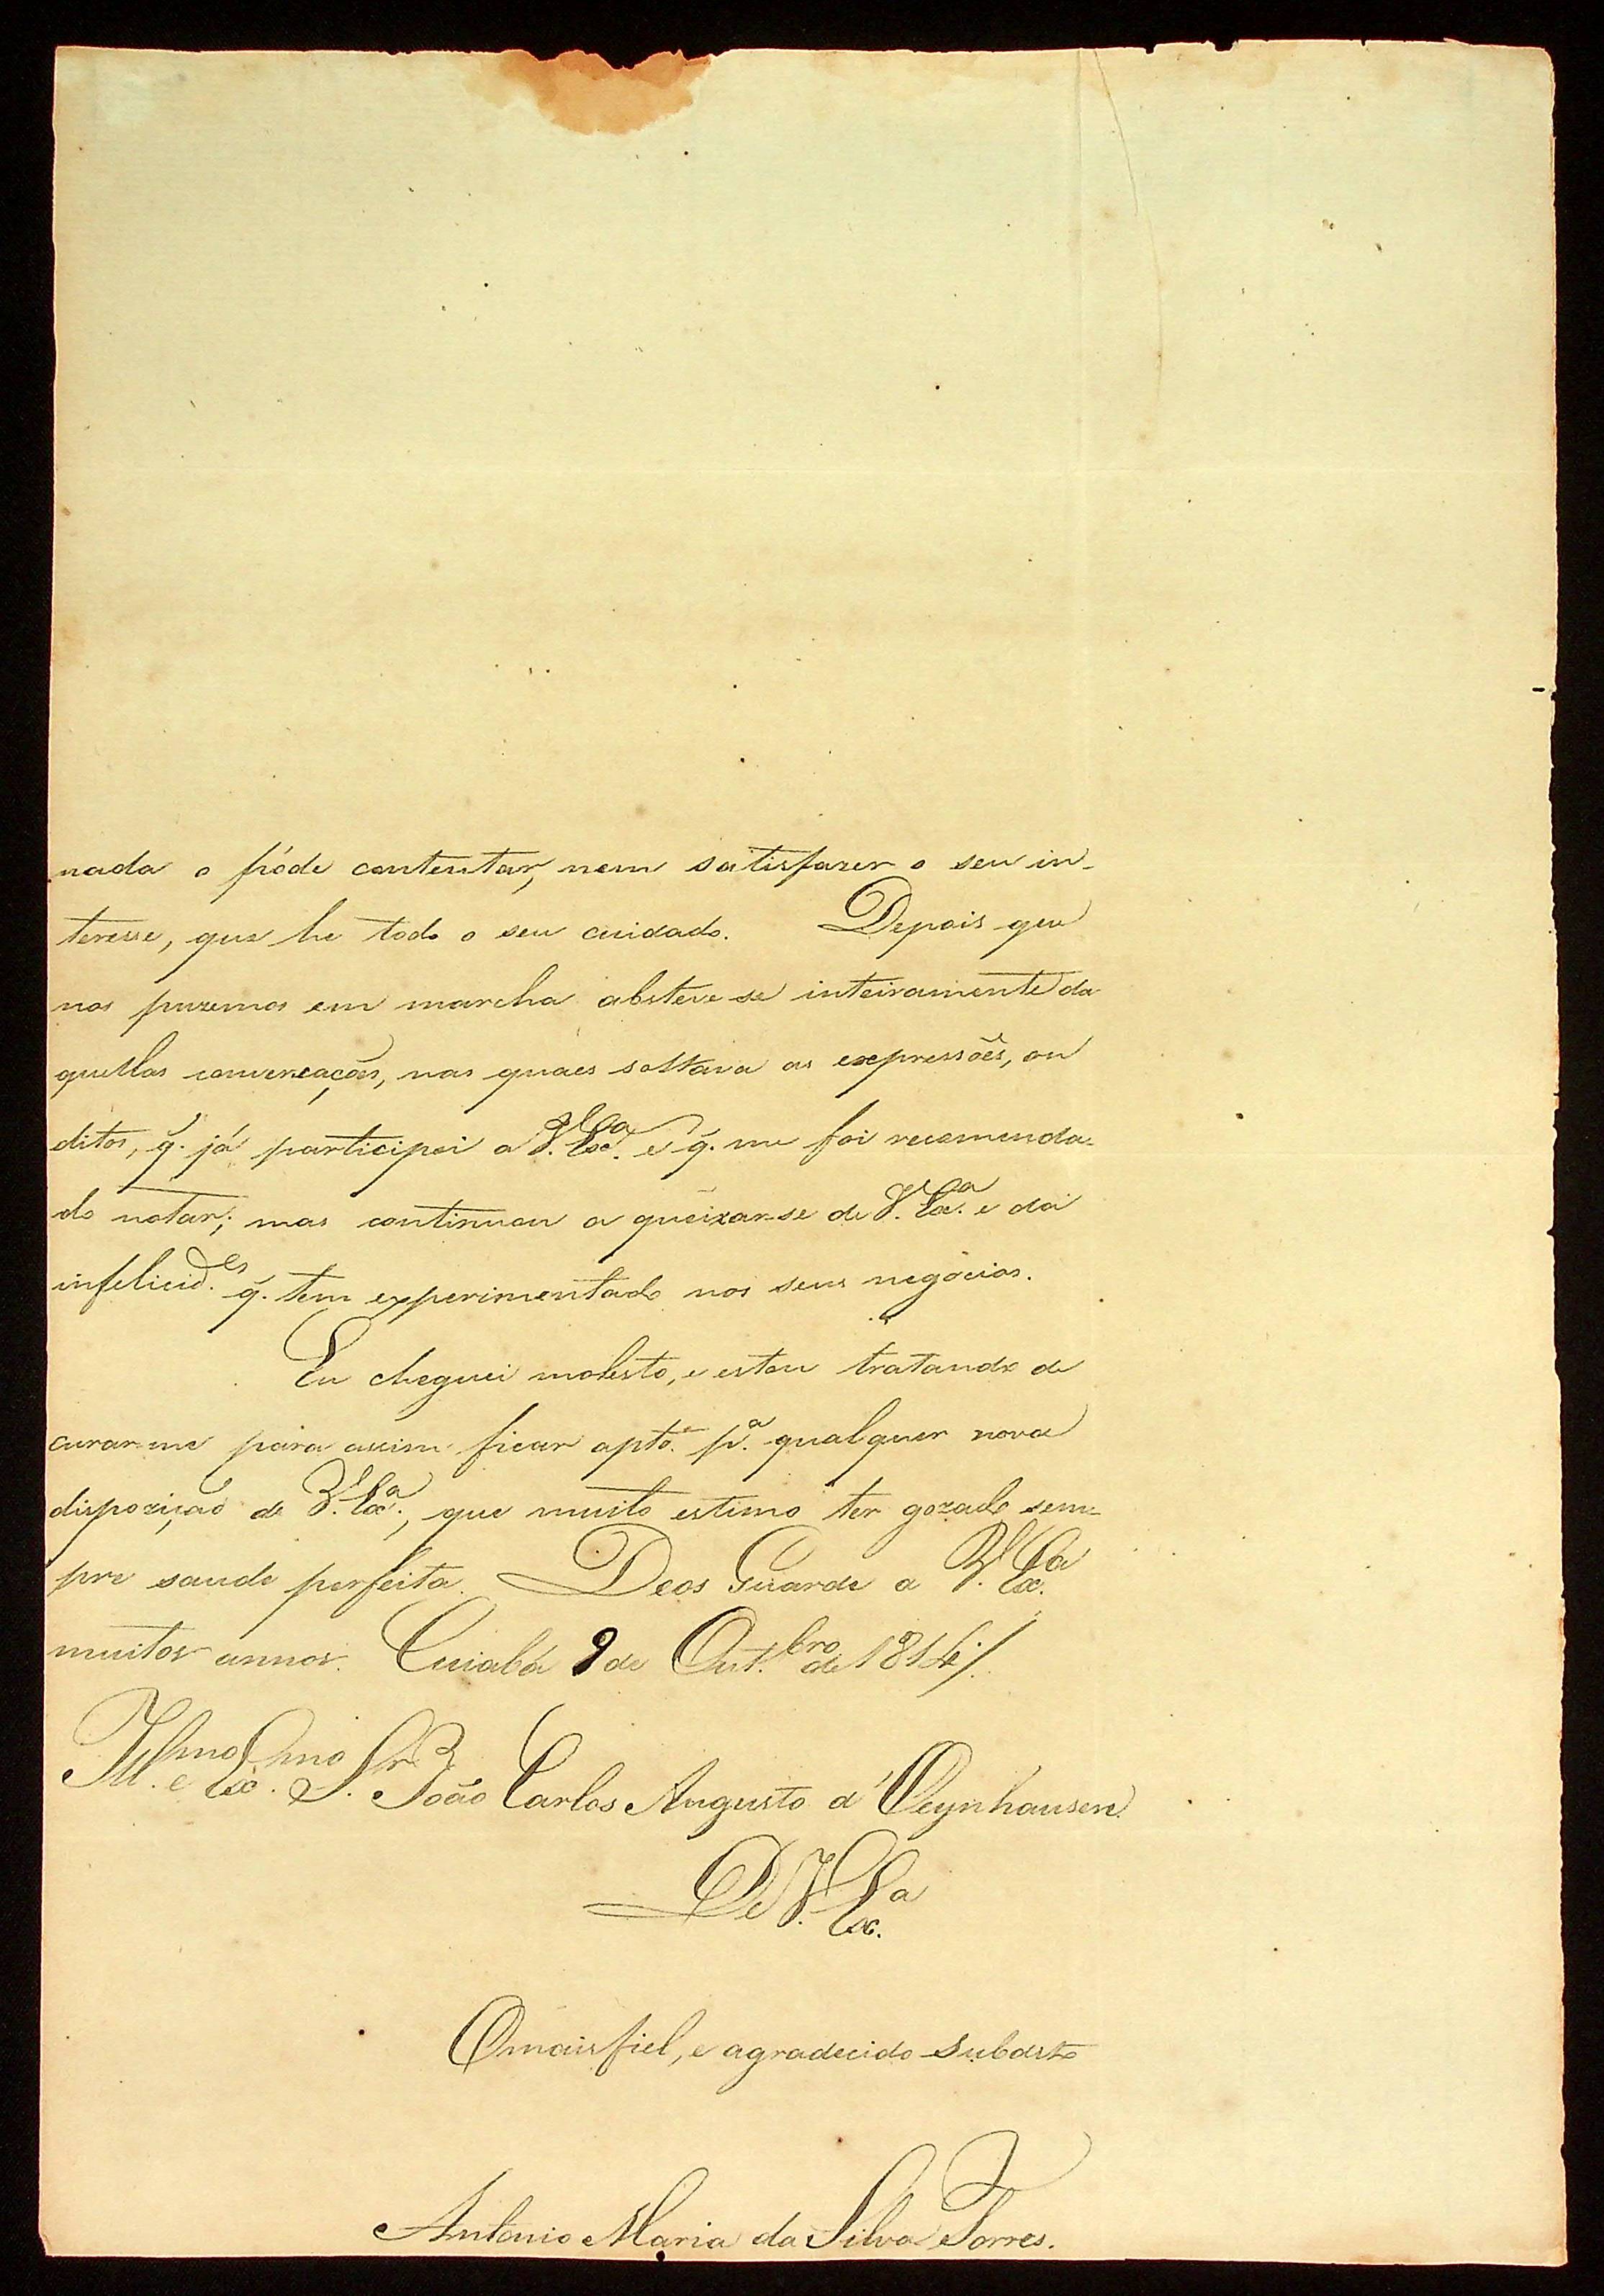 nada o póde contentar, nem satisfazer o seu in-
teresse, que he todo o seu cuidado. Depois que
nos puzemos em marcha absteve-se inteiramente da-
quellas conversações, nas quaes soltava as expressões, ou
ditos, q̃. já participei a V. Ex.ª e q̃. me foi recomenda-
do notar; mas continuou a queixar-se de V. Ex.ª e da
infelicid.es q̃. tem experimentado nos seus negocios.
Eu cheguei molesto, e estou tratando de
curar-me para assim ficar apto. p.ª qualquer nova
dispozição de V. Ex.ª, que muito estimo ter gozado sem-
pre saude perfeita. Deos Guarde a V. Ex.ª
muitos annos. Cuiabá 9 de Out.bro de 1814/.
Ill.mo e Ex.mo S.r João Carlos Augusto d'Oeynhausen.
De V. Ex.ª
O mais fiel, e agradecido subdito
Antonio Maria da Silva Torres.